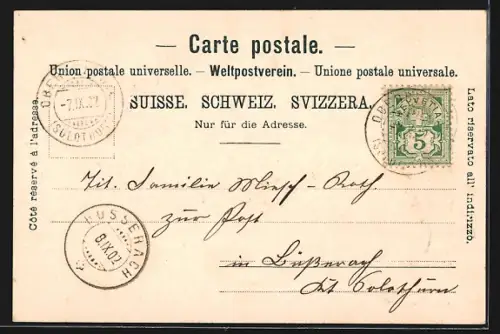 — Carte postale. —
Union postale universelle. – Weltpostverein. – Unione postale universale.
SUISSE. SCHWEIZ. SVIZZERA.
Nur für die Adresse.
Côté réservé à l'adresse.
Lato riservato all' indirizzo.
-7.IX.02
(SOLOTHURN)
HELVETIA
5
Tit. Familie Miesch-Roth
zur Post
in Büßerach
Kt Solothurn
BÜSSERACH
8.IX.02